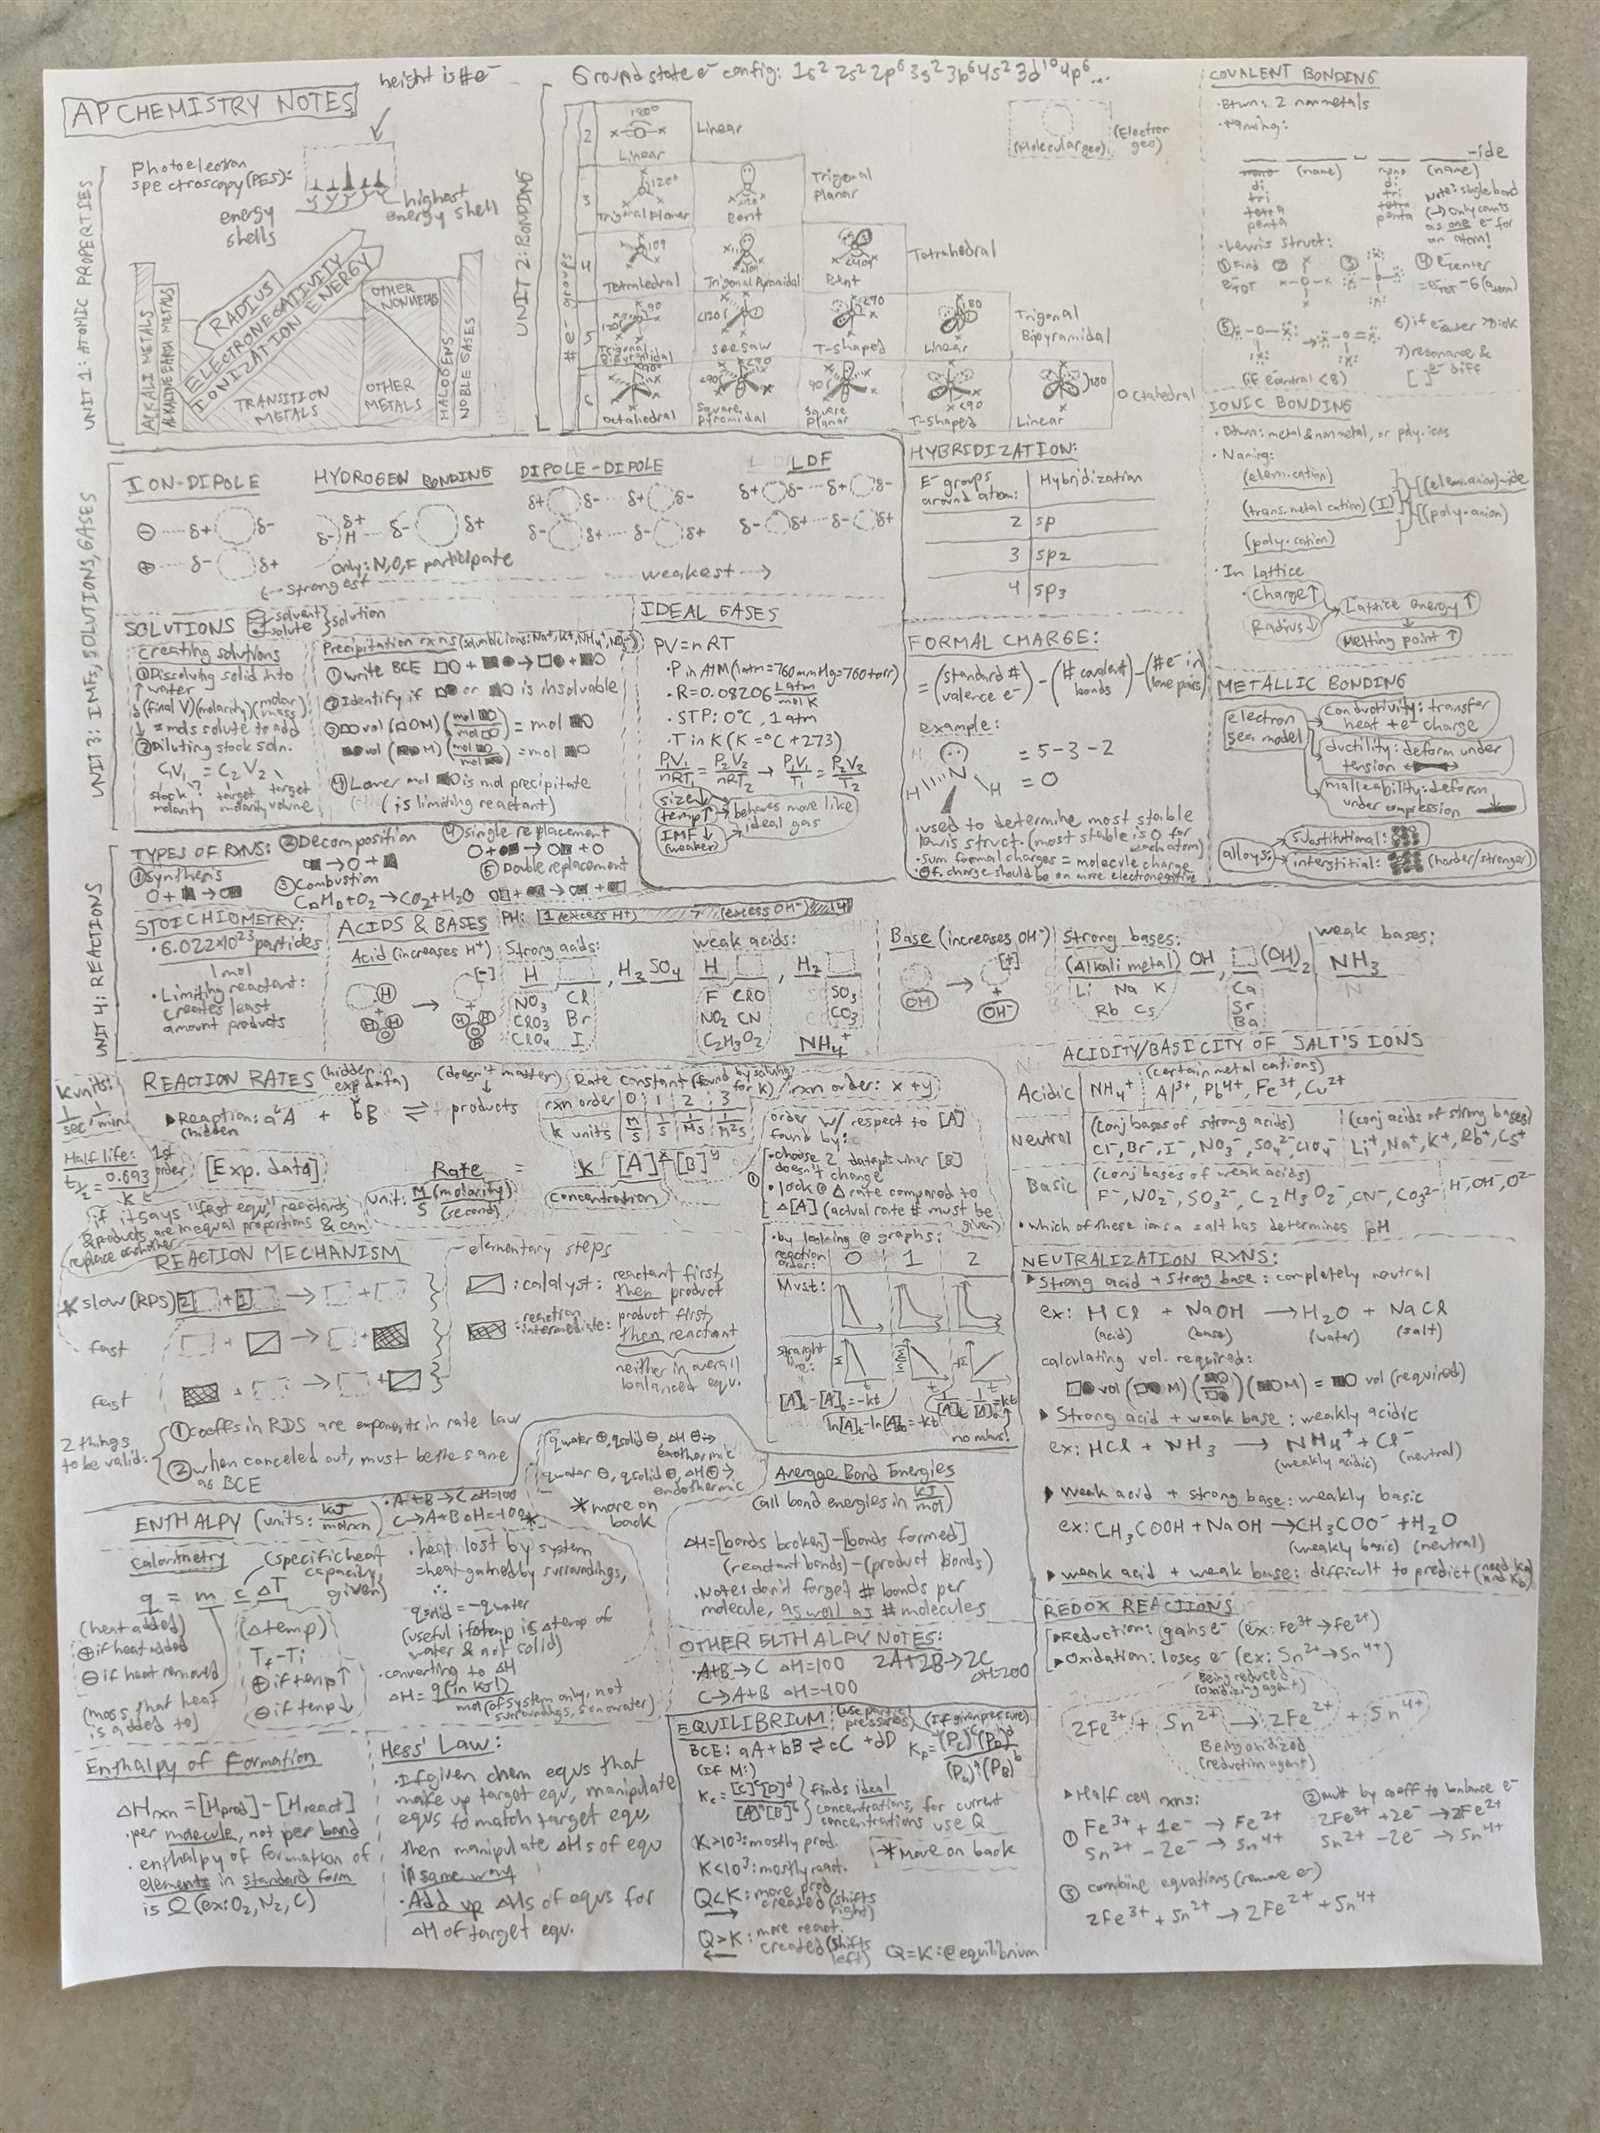 AP CHEMISTRY NOTES
height is #e⁻
UNIT 1: ATOMIC PROPERTIES
Photoelectron
spectroscopy (PES):
energy
shells
highest
energy shell
RADIUS
ELECTRONEGATIVITY
IONIZATION ENERGY
ALKALI METALS
ALKALINE EARTH METALS
TRANSITION
METALS
OTHER
METALS
OTHER
NONMETALS
HALOGENS
NOBLE GASES
UNIT 2: BONDING
Ground state e⁻ config: 1s² 2s² 2p⁶ 3s² 3p⁶ 4s² 3d¹⁰ 4p⁶...
(Molecular geo)
(Electron
geo)
# e⁻ groups
2
180°
Linear
Linear
3
120°
Trigonal Planar
Bent
Trigonal
Planar
4
109
Tetrahedral
Trigonal Pyramidal
Bent
Tetrahedral
5
120
90
Trigonal
Bipyramidal
<120
seesaw
<90
T-shaped
180
Linear
Trigonal
Bipyramidal
6
Octahedral
<90
Square
pyramidal
90
Square
Planar
<90
T-shaped
180
Linear
Octahedral
COVALENT BONDING
· Btwn: 2 nonmetals
· Naming:
-ide
mono (name) mono (name)
di di
tri tri
tetra tetra
penta penta
Note: single bond
(-) only counts
as one e⁻ for
an atom!
· Lewis struct:
① Find
e⁻TOT
②
③
④ e⁻center
= e⁻TOT - 6(atom)
⑤
(if central <8)
7) resonance &
[ ] e⁻ diff
IONIC BONDING
· Btwn: metal & nonmetal, or poly. ions
· Naming:
(elem. cation)
(trans. metal cation)(I)
(poly. cation)
(elem. anion)-ide
(poly. anion)
· In Lattice
· Charge↑
Radius↓
Lattice energy↑
Melting point↑
METALLIC BONDING
electron
sea model
conductivity: transfer
heat + e⁻ charge
ductility: deform under
tension
malleability: deform
under compression
alloys:
substitutional:
interstitial: (harder/stronger)
UNIT 3: IMFs, SOLUTIONS, GASES
ION-DIPOLE
HYDROGEN BONDING
DIPOLE-DIPOLE
LDF
⊖ ···· δ+ δ-
⊕ ···· δ- δ+
δ+
δ- H ··· δ- δ+
only: N, O, F participate
δ+ δ- ··· δ+ δ-
δ- δ+ ··· δ- δ+
δ+ δ- ··· δ+ δ-
δ- δ+ ··· δ- δ+
<--- strongest
weakest --->
SOLUTIONS
solvent
solute
solution
creating solutions
① Dissolving solid into
water
(final V)(molarity)(molar mass)
= mols solute to add
② Diluting stock soln.
C₁V₁ = C₂V₂
stock molarity
?
target molarity
target volume
Precipitation rxns (soluble ions: Na⁺, K⁺, NH₄⁺, NO₃⁻)
① write BCE
② Identify if or is insoluble
③ vol ( M)(mol / mol ) = mol
vol ( M)(mol / mol ) = mol
④ Lower mol is mol precipitate
(is limiting reactant)
IDEAL GASES
PV=nRT
· P in ATM (1atm=760mmHg=760torr)
· R=0.08206 L atm / mol K
· STP: 0°C, 1 atm
· T in K (K=°C+273)
P₁V₁/nRT₁ = P₂V₂/nRT₂ → P₁V₁/T₁ = P₂V₂/T₂
size↓
temp↑
IMF↓
(weaker)
behaves more like
ideal gas
HYBRIDIZATION:
E⁻ groups
around atom:
Hybridization
2 sp
3 sp2
4 sp3
FORMAL CHARGE:
= (standard # valence e⁻) - (# covalent bonds) - (# e⁻ in lone pairs)
example:
H N H
H
= 5-3-2
= 0
· used to determine most stable
lewis struct. (most stable is 0 for
each atom)
· Sum formal charges = molecule charge
· ⊖ f. charge should be on more electronegative
UNIT 4: REACTIONS
TYPES OF RXNS:
① Synthesis
② Decomposition
③ Combustion
CₙHₙ+O₂→CO₂+H₂O
④ single replacement
⑤ Double replacement
STOICHIOMETRY:
· 6.022×10²³ particles
1 mol
· Limiting reactant:
creates least
amount products
ACIDS & BASES
PH: 1 (excess H⁺) (excess OH⁻) 14
Acid (increases H⁺)
[-]
Strong acids:
H , H₂SO₄
NO₃ Cl
ClO₃ Br
ClO₄ I
weak acids:
H , H₂
F ClO
NO₂ CN
C₂H₃O₂
SO₃
CO₃
NH₄⁺
Base (increases OH⁻)
[+]
OH
OH⁻
Strong bases:
(Alkali metal) OH, (OH)₂
Li Na K
Rb Cs
Ca
Sr
Ba
weak bases:
NH₃
ACIDITY/BASICITY OF SALT'S IONS
(certain metal cations)
Acidic NH₄⁺ Al³⁺, Pb⁴⁺, Fe³⁺, Cu²⁺
Neutral (conj bases of strong acids) (conj acids of strong bases)
Cl⁻, Br⁻, I⁻, NO₃⁻, SO₄²⁻, ClO₄⁻ Li⁺, Na⁺, K⁺, Rb⁺, Cs⁺
Basic (conj bases of weak acids)
F⁻, NO₂⁻, SO₃²⁻, C₂H₃O₂⁻, CN⁻, CO₃²⁻ H⁻, OH⁻, O²⁻
· which of these ions a salt has determines pH
k units:
1/sec, 1/min
REACTION RATES (hidden in exp data)
(doesn't matter)
▸Reaction: aA + bB ⇌ products
(hidden
Half life: 1st order
t½ = 0.693/k
[Exp. data]
Rate = k [A]ˣ [B]ʸ
unit: M/S (molarity)
(second)
(concentration)
Rate constant (found by solving for k) / rxn order: x+y
rxn order 0 1 2 3
k units M/S 1/S 1/MS 1/M²S
order w/ respect to [A]
found by:
①
· choose 2 datapts wher [B]
doesn't change
· look @ Δ rate compared to
Δ[A] (actual rate # must be
given)
· by looking @ graphs:
reaction
order: 0 1 2
M vs t:
straight
line:
[A]t-[A]0=-kt
ln[A]t-ln[A]0=-kt
1/[A]t - 1/[A]0=kt
no minus!
if it says "fast equ," reactants
& products are in equal proportions & can
replace eachother
REACTION MECHANISM
elementary steps
* slow (RPS)
fast
fast
: catalyst: reactant first,
then product
: reaction
intermediate: product first,
then reactant
neither in overall
balanced equ.
2 things
to be valid:
① coeffs in RDS are exponents in rate law
② when canceled out, must be the same
as BCE
qwater ⊕, qsolid ⊖, ΔH ⊖→
exothermic
qwater ⊖, qsolid ⊕, ΔH ⊕→
endothermic
* more on
back
ENTHALPY (units: kJ/molrxn)
· A+B→C ΔH=100
C→A+B ΔH=-100
Calorimetry
q = m c ΔT
(specific heat
capacity,
given)
(heat added)
⊕ if heat added
⊖ if heat removed
(mass that heat
is added to)
(Δtemp)
Tf-Ti
⊕ if temp↑
⊖ if temp↓
· heat lost by system
=heat gained by surroundings,
∴
qsolid = -qwater
(useful if Δtemp is Δtemp of
water & not solid)
· converting to ΔH
ΔH = q (in kJ)
mol (of system only, not
surroundings, so no water)
Average Bond Energies
(all bond energies in kJ/mol)
ΔH=[bonds broken]-[bonds formed]
(reactant bonds)-(product bonds)
· Note: don't forget # bonds per
molecule, as well as # molecules
OTHER ELTHALPY NOTES:
· A+B→C ΔH=100 2A+2B→2C
ΔH=200
C→A+B ΔH=-100
Enthalpy of Formation
ΔHrxn=[Hprod]-[Hreact]
· per molecule, not per bond
· enthalpy of formation of
elements in standard form
is 0 (ex: O₂, N₂, C)
Hess' Law:
· If given chem equs that
make up target equ, manipulate
equs to match target equ,
then manipulate ΔHs of equ
in same way
· Add up ΔHs of equs for
ΔH of target equ.
EQUILIBRIUM:
(use partial
pressures)
(If given pressure)
BCE: aA+bB⇌cC+dD
(If M:)
Kp = (PC)ᶜ(PD)ᵈ
(PA)ᵃ(PB)ᵇ
Kc = [C]ᶜ[D]ᵈ
[A]ᵃ[B]ᵇ
finds ideal
concentrations, for current
concentrations use Q
K>10³: mostly prod.
K<10³: mostly react.
* More on back
Q<K: more prod
created (shifts
right)
Q>K: more react.
created (shifts
left)
Q=K: @equilibrium
NEUTRALIZATION RXNS:
▸ Strong acid + strong base: completely neutral
ex: HCl + NaOH → H₂O + NaCl
(acid) (base) (water) (salt)
calculating vol. required:
vol ( M)( )( M) = vol (required)
▸ Strong acid + weak base: weakly acidic
ex: HCl + NH₃ → NH₄⁺ + Cl⁻
(weakly acidic) (neutral)
▸ weak acid + strong base: weakly basic
ex: CH₃COOH + NaOH → CH₃COO⁻ + H₂O
(weakly basic) (neutral)
▸ weak acid + weak base: difficult to predict (need Ka and Kb)
REDOX REACTIONS
▸Reduction: gains e⁻ (ex: Fe³⁺→Fe²⁺)
▸Oxidation: loses e⁻ (ex: Sn²⁺→Sn⁴⁺)
Being reduced
(oxidizing agent)
2Fe³⁺ + Sn²⁺ → 2Fe²⁺ + Sn⁴⁺
Being oxidized
(reduction agent)
▸Half cell rxns:
① Fe³⁺ + 1e⁻ → Fe²⁺
Sn²⁺ - 2e⁻ → Sn⁴⁺
② mult by coeff to balance e⁻
2Fe³⁺ + 2e⁻ → 2Fe²⁺
Sn²⁺ - 2e⁻ → Sn⁴⁺
③ combine equations (remove e⁻)
2Fe³⁺ + Sn²⁺ → 2Fe²⁺ + Sn⁴⁺